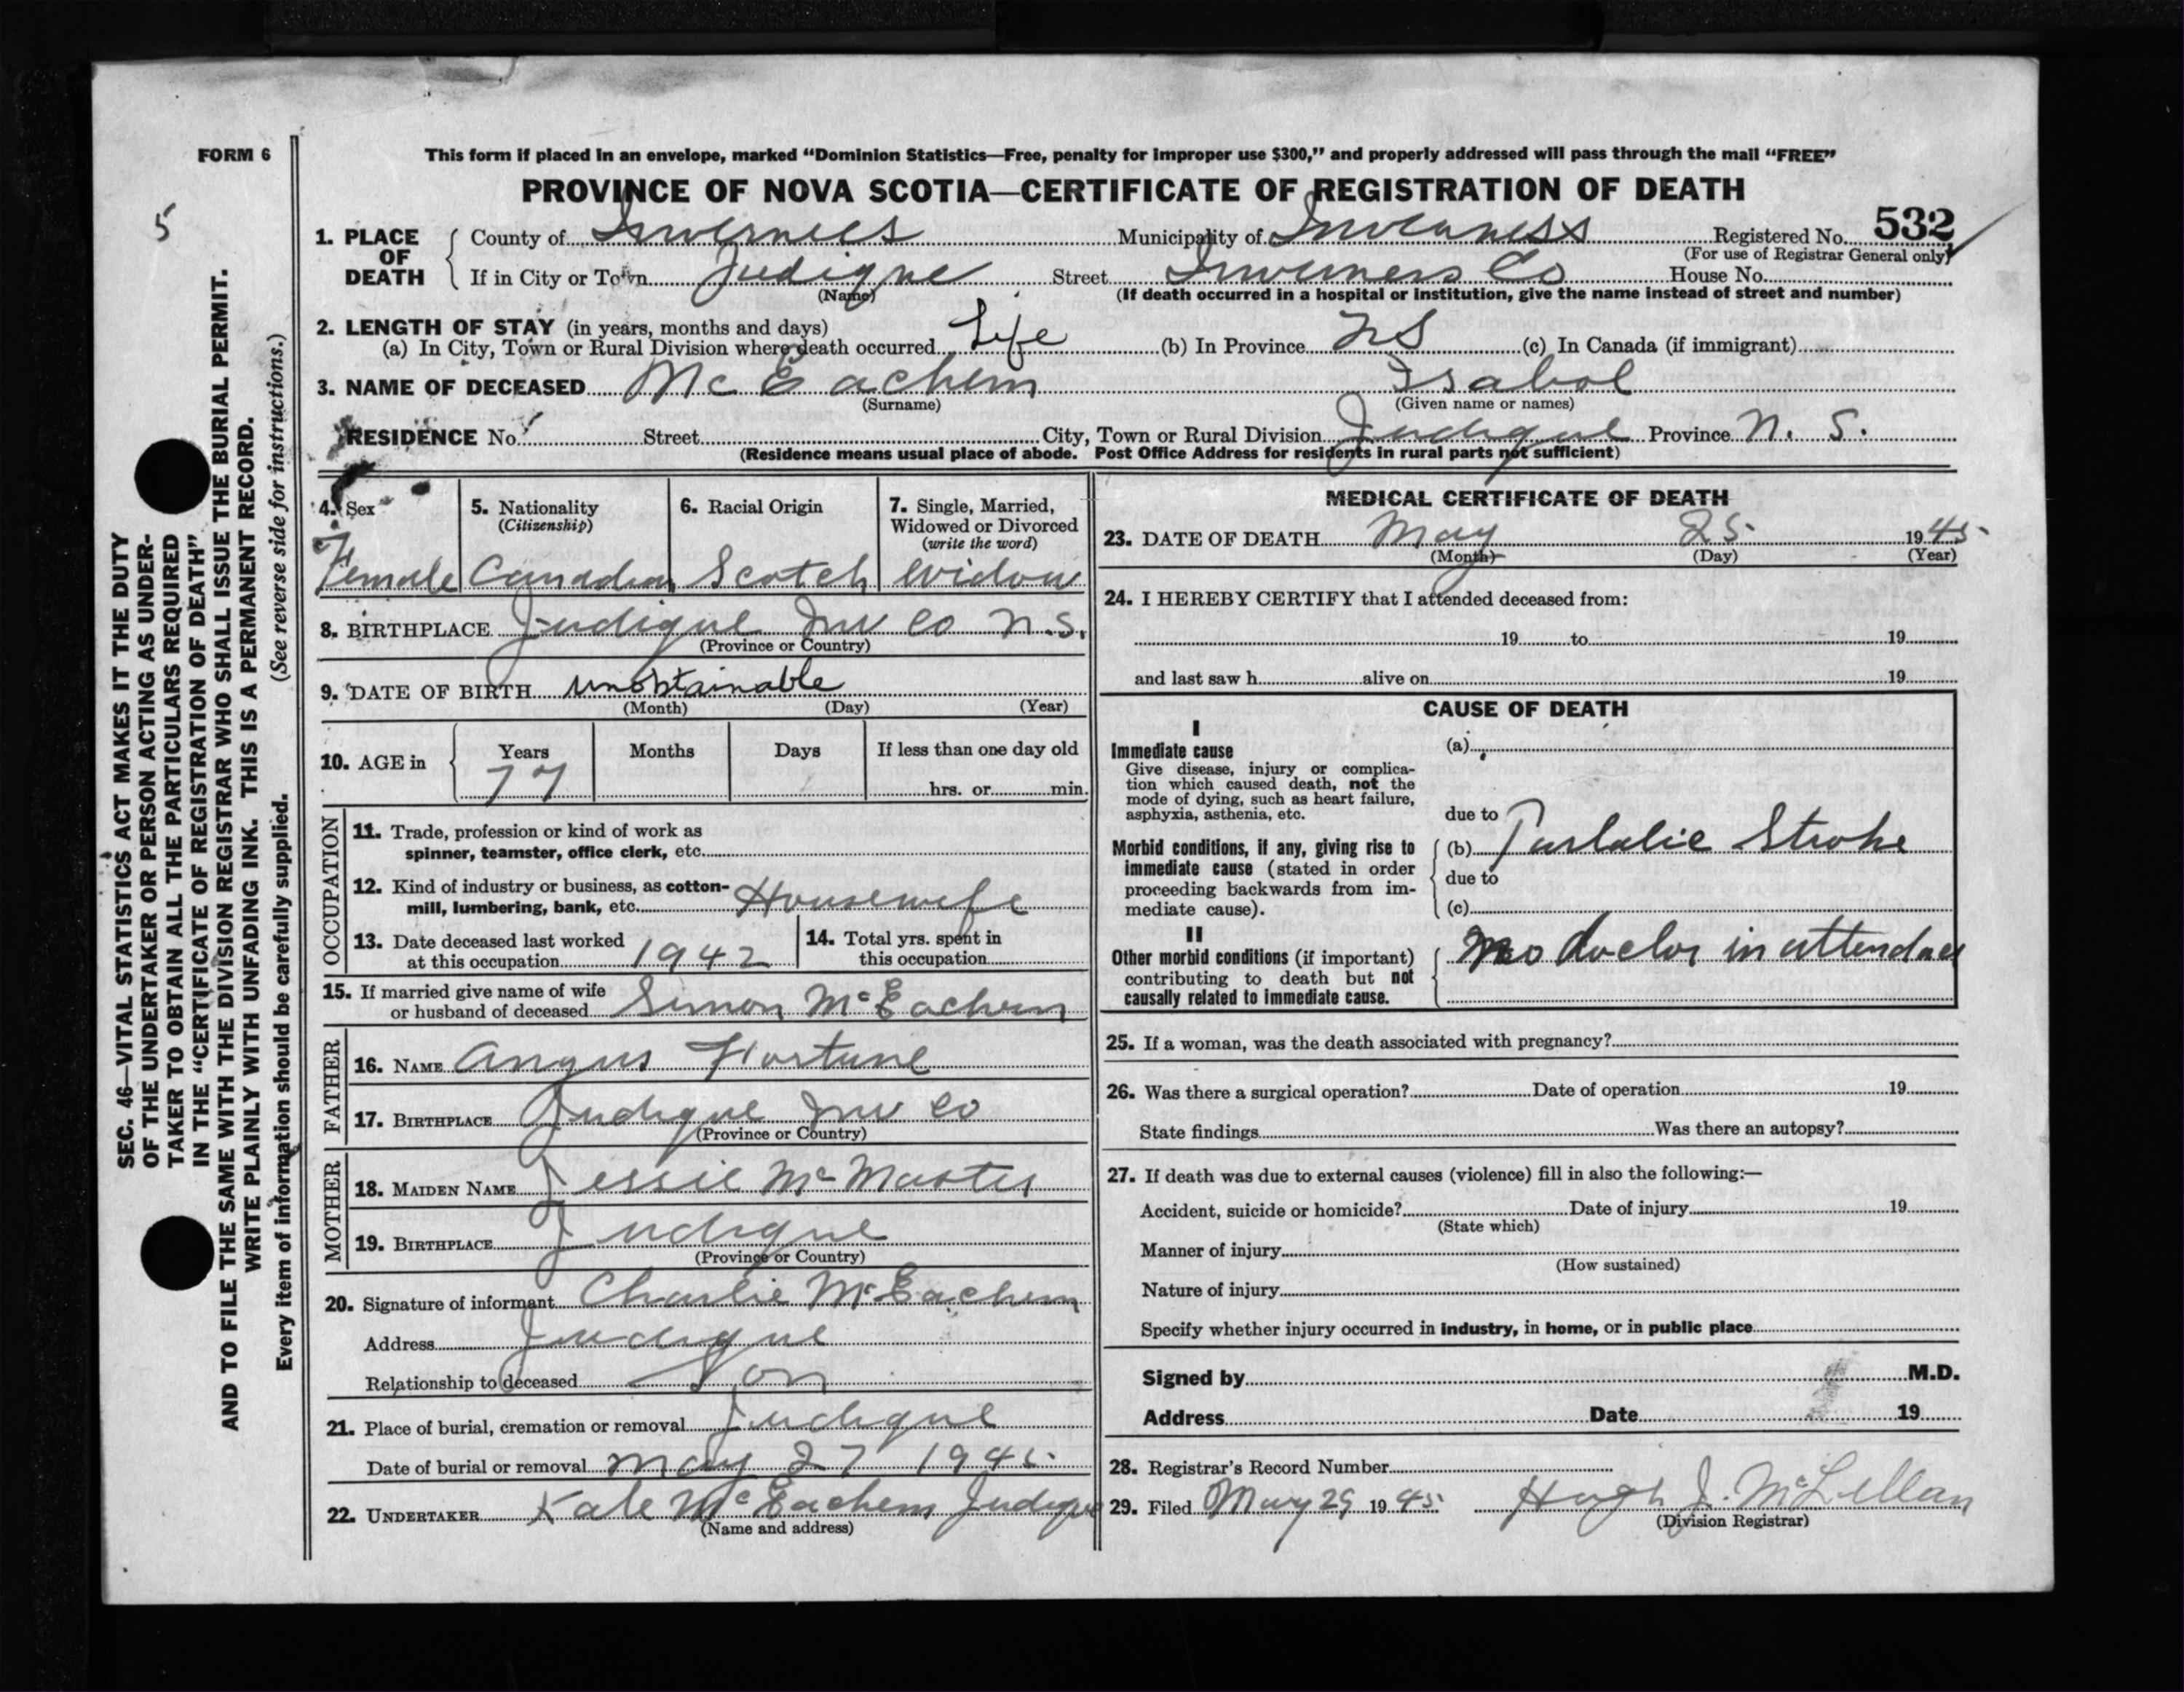 FORM 6
5
SEC. 46—VITAL STATISTICS ACT MAKES IT THE DUTY
OF THE UNDERTAKER OR PERSON ACTING AS UNDER-
TAKER TO OBTAIN ALL THE PARTICULARS REQUIRED
IN THE "CERTIFICATE OF REGISTRATION OF DEATH"
AND TO FILE THE SAME WITH THE DIVISION REGISTRAR WHO SHALL ISSUE THE BURIAL PERMIT.
WRITE PLAINLY WITH UNFADING INK. THIS IS A PERMANENT RECORD.
Every item of information should be carefully supplied. (See reverse side for instructions.)
This form if placed in an envelope, marked "Dominion Statistics—Free, penalty for improper use $300," and properly addressed will pass through the mail "FREE"
PROVINCE OF NOVA SCOTIA—CERTIFICATE OF REGISTRATION OF DEATH
1. PLACE OF DEATH County of Inverness Municipality of Inverness Registered No. 532
(For use of Registrar General only)
If in City or Town Judique Street Inverness Co House No.
(Name) (If death occurred in a hospital or institution, give the name instead of street and number)
2. LENGTH OF STAY (in years, months and days)
(a) In City, Town or Rural Division where death occurred Life (b) In Province NS (c) In Canada (if immigrant)
3. NAME OF DECEASED Mc Eachern Isabol
(Surname) (Given name or names)
RESIDENCE No. Street City, Town or Rural Division Judique Province N. S.
(Residence means usual place of abode. Post Office Address for residents in rural parts not sufficient)
4. Sex 5. Nationality 6. Racial Origin 7. Single, Married,
(Citizenship) Widowed or Divorced
(write the word)
Female Canadian Scotch Widow
8. BIRTHPLACE Judique Inv Co N.S.
(Province or Country)
9. DATE OF BIRTH unobtainable
(Month) (Day) (Year)
10. AGE in Years Months Days If less than one day old
77 hrs. or min.
OCCUPATION
11. Trade, profession or kind of work as
spinner, teamster, office clerk, etc.
12. Kind of industry or business, as cotton-
mill, lumbering, bank, etc. Housewife
13. Date deceased last worked
at this occupation 1942
14. Total yrs. spent in
this occupation
15. If married give name of wife
or husband of deceased Simon McEachern
FATHER
16. NAME Angus Fortune
17. BIRTHPLACE Judique Inv Co
(Province or Country)
MOTHER
18. MAIDEN NAME Jessie McMaster
19. BIRTHPLACE Judique
(Province or Country)
20. Signature of informant Charlie McEachern
Address Judique
Relationship to deceased Son
21. Place of burial, cremation or removal Judique
Date of burial or removal May 27 1945
22. UNDERTAKER Kate McEachern Judique
(Name and address)
MEDICAL CERTIFICATE OF DEATH
23. DATE OF DEATH May 25 1945
(Month) (Day) (Year)
24. I HEREBY CERTIFY that I attended deceased from:
19 to 19
and last saw h alive on 19
CAUSE OF DEATH
I
Immediate cause
Give disease, injury or complica-
tion which caused death, not the
mode of dying, such as heart failure,
asphyxia, asthenia, etc.
(a)
due to
Morbid conditions, if any, giving rise to
immediate cause (stated in order
proceeding backwards from im-
mediate cause).
(b) Stroke
due to
(c)
II
Other morbid conditions (if important)
contributing to death but not
causally related to immediate cause.
no doctor in attendace
25. If a woman, was the death associated with pregnancy?
26. Was there a surgical operation? Date of operation 19
State findings Was there an autopsy?
27. If death was due to external causes (violence) fill in also the following:—
Accident, suicide or homicide? Date of injury 19
(State which)
Manner of injury
(How sustained)
Nature of injury
Specify whether injury occurred in industry, in home, or in public place
Signed by M.D.
Address Date 19
28. Registrar's Record Number
29. Filed May 29 1945 Hugh J. McLellan
(Division Registrar)